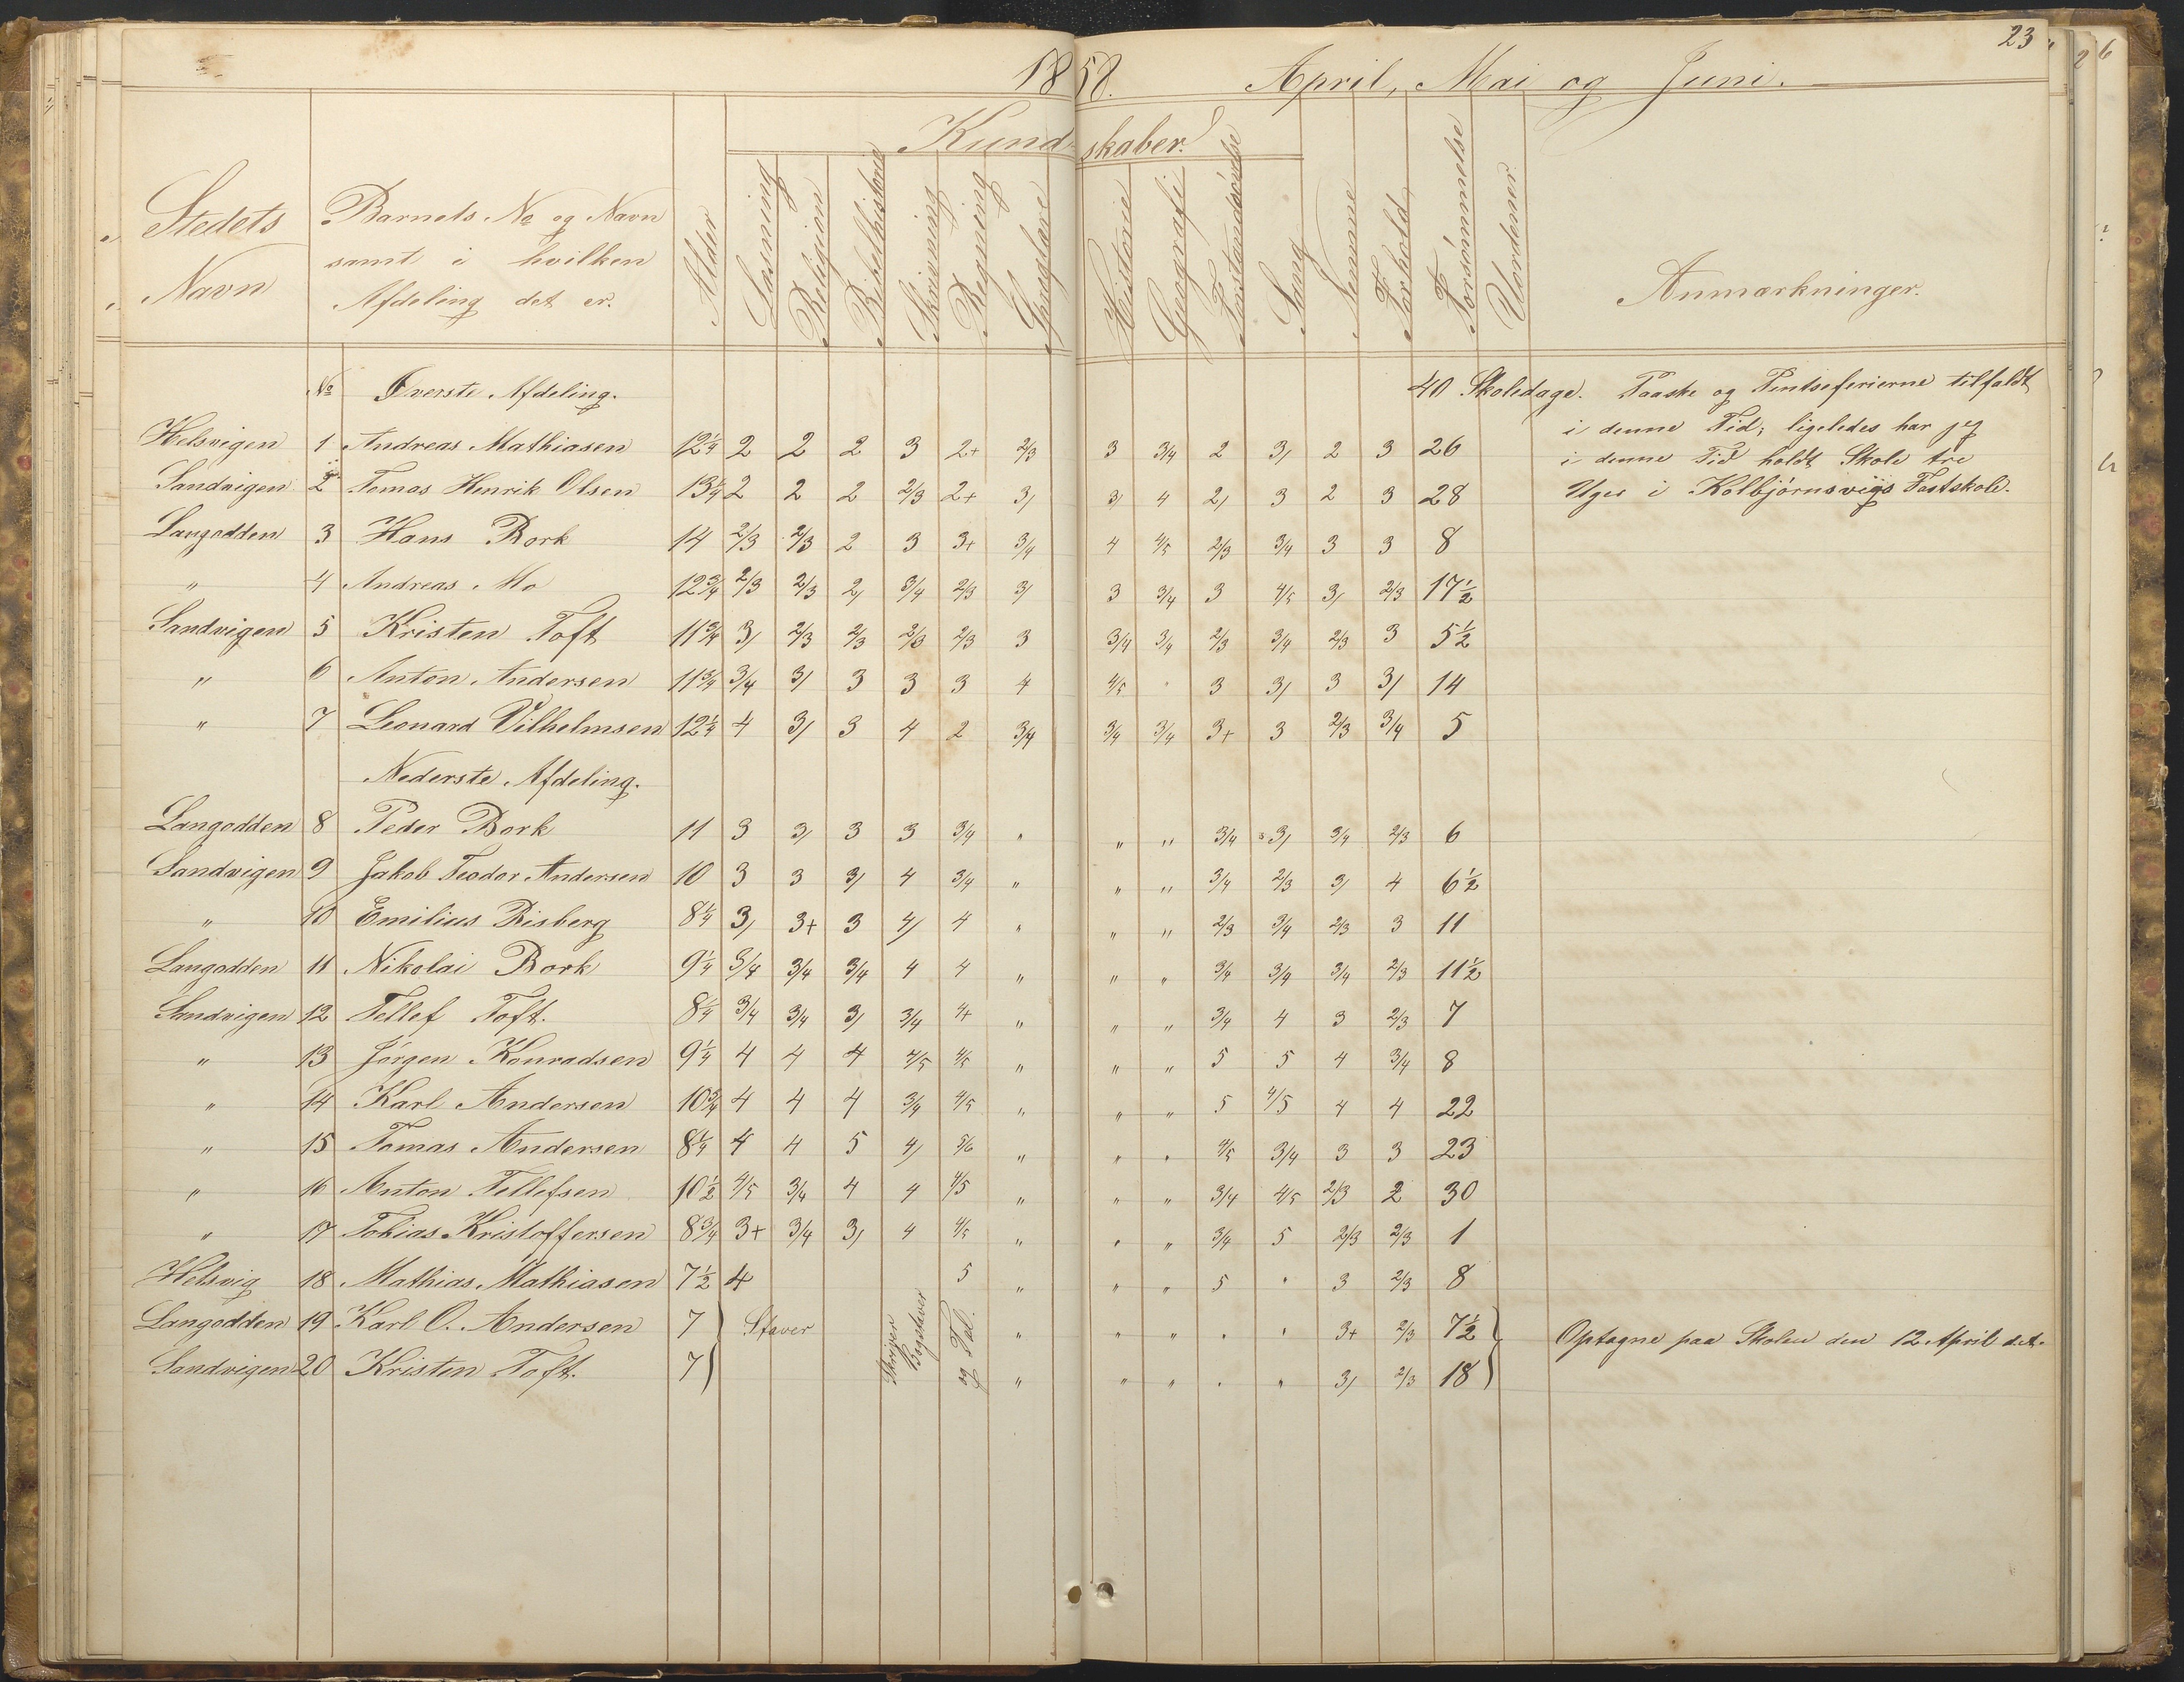 23
1858. April, Mai og Juni.
Kundskaber.
Stedets Navn
Barnets No og Navn
samt i hvilken
Afdeling det er.
Alder
Læsning
Religion
Bibelhistorie
Skrivning
Regning
Sproglære
Historie
Geografi
Forstandsøvelse
Sang
Nemme
Forhold
Forsømmelse
Uordener
Anmærkninger.
No Øverste Afdeling.
40 Skoledage. Paaske og Pintseferierne tilfaldt
i denne Tid; ligeledes har jeg
i denne Tid holdt Skole tre
Uger i Kolbjørnsvigs Fastskole.
Helsvigen 1 Andreas Mathiasen 12¼ 2 2 2 3 2+ 2/3 3 3/4 2 3/ 2 3 26
Sandvigen 2 Tomas Henrik Olsen 13¼ 2 2 2 2/3 2+ 3/ 3/ 4 2/ 3 2 3 28
Langodden 3 Hans Bork 14 2/3 2/3 2 3 3+ 3/4 4 4/5 2/3 3/4 3 3 8
" 4 Andreas Mo 12¾ 2/3 2/3 2/ 3/4 2/3 3/ 3 3/4 3 4/5 3/ 2/3 17½
Sandvigen 5 Kristen Toft 11¾ 3/ 2/3 2/3 2/3 2/3 3 3/4 3/4 2/3 3/4 2/3 3 5½
" 6 Anton Andersen 11¾ 3/4 3/ 3 3 3 4 4/5 " 3 3/ 3 3/ 14
" 7 Leonard Vilhelmsen 12¼ 4 3/ 3 4 2 3/4 3/4 3/4 3+ 3 2/3 3/4 5
Nederste Afdeling.
Langodden 8 Peder Bork 11 3 3/ 3 3 3/4 " " " 3/4 3/ 3/4 2/3 6
Sandvigen 9 Jakob Teodor Andersen 10 3 3 3/ 4 3/4 " " " 3/4 2/3 3/ 4 6½
" 10 Emilius Risberg 8¼ 3/ 3+ 3 4/ 4 " " " 2/3 3/4 2/3 3 11
Langodden 11 Nikolai Bork 9¼ 3/4 3/4 3/4 4 4 " " " 3/4 3/4 3/4 2/3 11½
Sandvigen 12 Tellef Toft. 8¼ 3/4 3/4 3/ 3/4 4+ " " " 3/4 4 3 2/3 7
" 13 Jørgen Konradsen 9¼ 4 4 4 4/5 4/5 " " " 5 5 4 3/4 8
" 14 Karl Andersen 10¾ 4 4 4 3/4 4/5 " " " 5 4/5 4 4 22
" 15 Tomas Andersen 8¼ 4 4 5 4/ 5/6 " " " 4/5 3/4 3 3 23
" 16 Anton Tellefsen 10½ 4/5 3/4 4 4 4/5 " " " 3/4 4/5 2/3 2 30
" 17 Tobias Kristoffersen 8¾ 3+ 3/4 3/ 4 4/5 " " " 3/4 5 2/3 2/3 1
Helsvig 18 Mathias Mathiasen 7½ 4 5 " " " 5 " 3 2/3 8
Langodden 19 Karl O. Andersen 7 Staver Skriver Bogstaver og Tal. " " " " " 3+ 2/3 7½ Optagne paa Skolen den 12 April d.A.
Sandvigen 20 Kristen Toft. 7 " " " " " 3/ 2/3 18